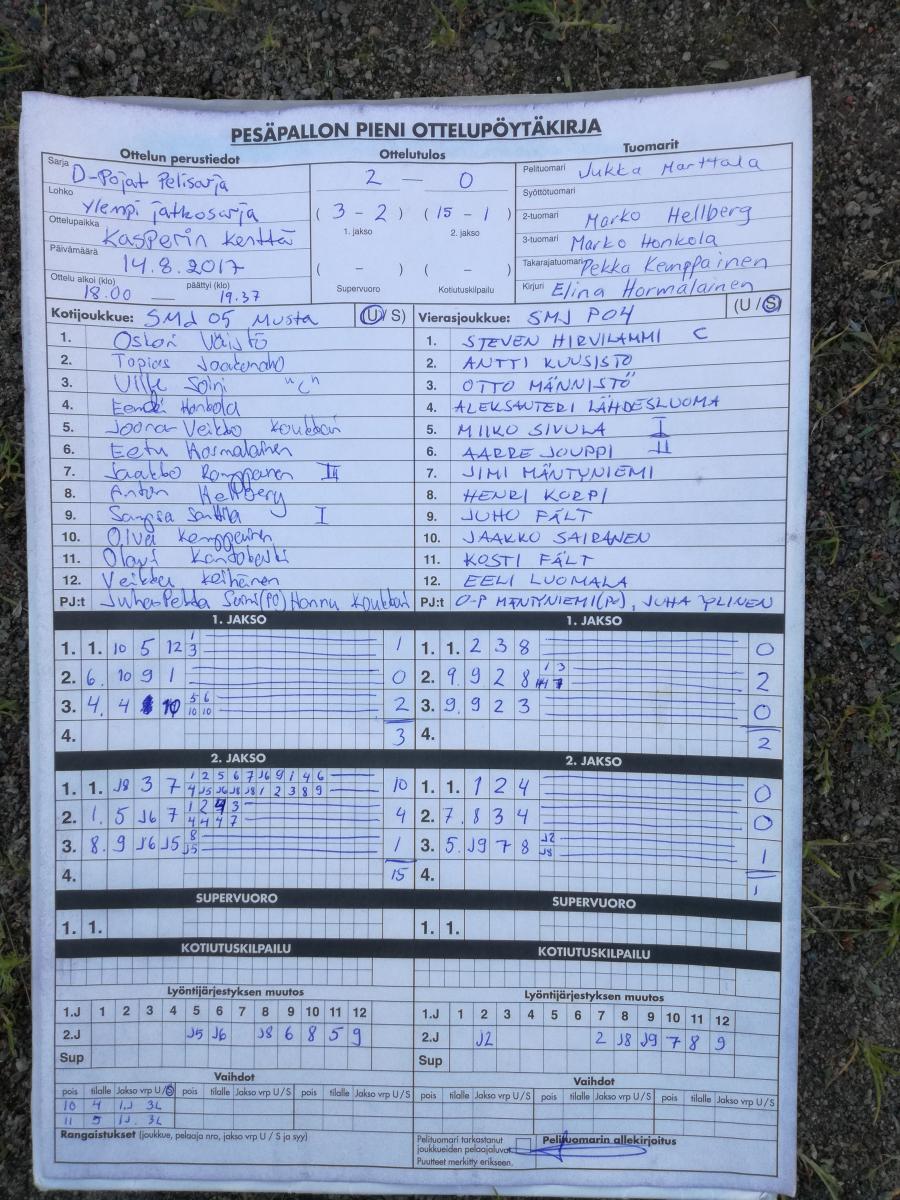 PESÄPALLON PIENI OTTELUPÖYTÄKIRJA
Ottelun perustiedot
Ottelutulos
Tuomarit
Sarja D-Pojat Pelisarja
Lohko Ylempi jatkosarja
Ottelupaikka Kasperin kenttä
Päivämäärä 14.8.2017
Ottelu alkoi (klo) 18.00 — päättyi (klo) 19.37
2 — 0
( 3 - 2 ) ( 15 - 1 )
1. jakso 2. jakso
( - ) ( - )
Supervuoro Kotiutuskilpailu
Pelituomari Jukka Marttala
Syöttötuomari
2-tuomari Marko Hellberg
3-tuomari Marko Honkola
Takarajatuomari Pekka Kemppainen
Kirjuri Elina Hormalainen
Kotijoukkue: SMJ 05 Musta (U/S)
1. Oskari Väistö
2. Topias
3. Ville Soini "C"
4. Eemeli Honkola
5. Joona-Veikko Koukkari
6. Eetu Hormalainen
7. Jaakko Kemppainen II
8. Anton Hellberg
9. I
10. Oiva Kemppainen
11. Olavi
12. Veikka Keihänen
PJ:t Juha-Pekka Soini(PO) Hannu Koukkari
Vierasjoukkue: SMJ PO4 (U/S)
1. STEVEN HIRVILAMMI C
2. ANTTI KUUSISTO
3. OTTO MÄNNISTÖ
4. ALEKSANTERI LÄHDESLUOMA
5. MIIKO SIVULA I
6. AARRE JOUPPI II
7. JIMI MÄNTYNIEMI
8. HENRI KORPI
9. JUHO FÄLT
10. JAAKKO SAIRANEN
11. KOSTI FÄLT
12. EELI LUOMALA
PJ:t O-P MÄNTYNIEMI(PO), JUHA YLINEN
1. JAKSO
1. 1. 10 5 12 1 3 1
2. 6. 10 9 1 0
3. 4. 4 10 5 6 10 10 2
4. 3
1. JAKSO
1. 1. 2 3 8 0
2. 9. 9 2 8 1 3 2
3. 9. 9 2 3 0
4. 2
2. JAKSO
1. 1. J8 3 7 1 2 5 6 7 J6 9 1 4 6 10
4 J5 J6 J8 J8 1 2 3 8 9
2. 1. 5 J6 7 1 2 4 3 4
4 4 4 7
3. 8. 9 J6 J5 8 1
J5
4. 15
2. JAKSO
1. 1. 1 2 4 0
2. 7. 8 3 4 0
3. 5. J9 7 8 J2 J8 1
4. 1
SUPERVUORO
1. 1.
SUPERVUORO
1. 1.
KOTIUTUSKILPAILU
KOTIUTUSKILPAILU
Lyöntijärjestyksen muutos
1.J 1 2 3 4 5 6 7 8 9 10 11 12
2.J J5 J6 J8 6 8 5 9
Sup
Lyöntijärjestyksen muutos
1.J 1 2 3 4 5 6 7 8 9 10 11 12
2.J J2 2 J8 J9 7 8 9
Sup
Vaihdot
pois tilalle Jakso vrp U/S pois tilalle Jakso vrp U/S pois tilalle Jakso vrp U/S
10 4 1J 3L
11 5 1J 3L
Vaihdot
pois tilalle Jakso vrp U/S pois tilalle Jakso vrp U/S pois tilalle Jakso vrp U/S
Rangaistukset (joukkue, pelaaja nro, jakso vrp U / S ja syy)
Pelituomari tarkastanut
joukkueiden pelaajaluvat
Puutteet merkitty erikseen.
Pelituomarin allekirjoitus